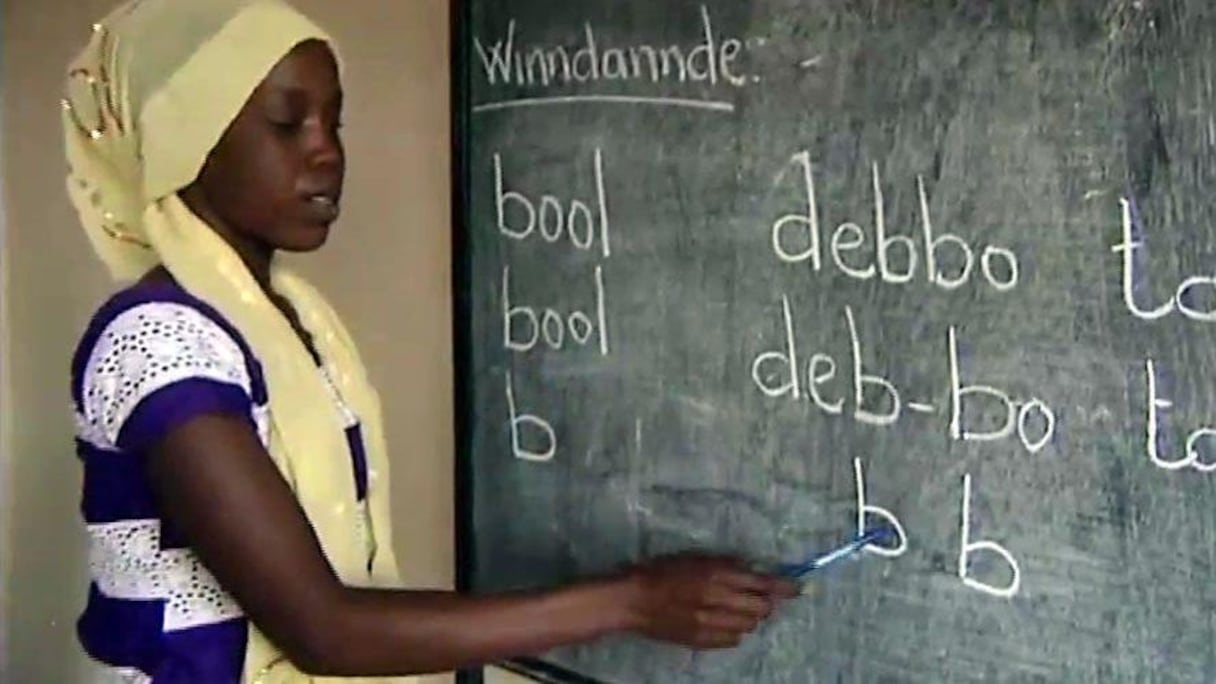 Winndannde:-
bool debbo to
bool deb-bo to
b b b